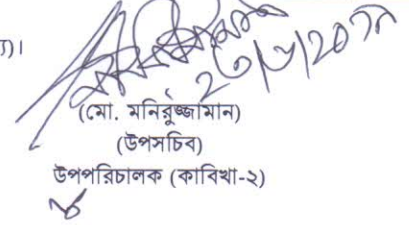 ্য)।
(মো. মনিরুজ্জামান)
(উপসচিব)
উপপরিচালক (কাবিখা-২)